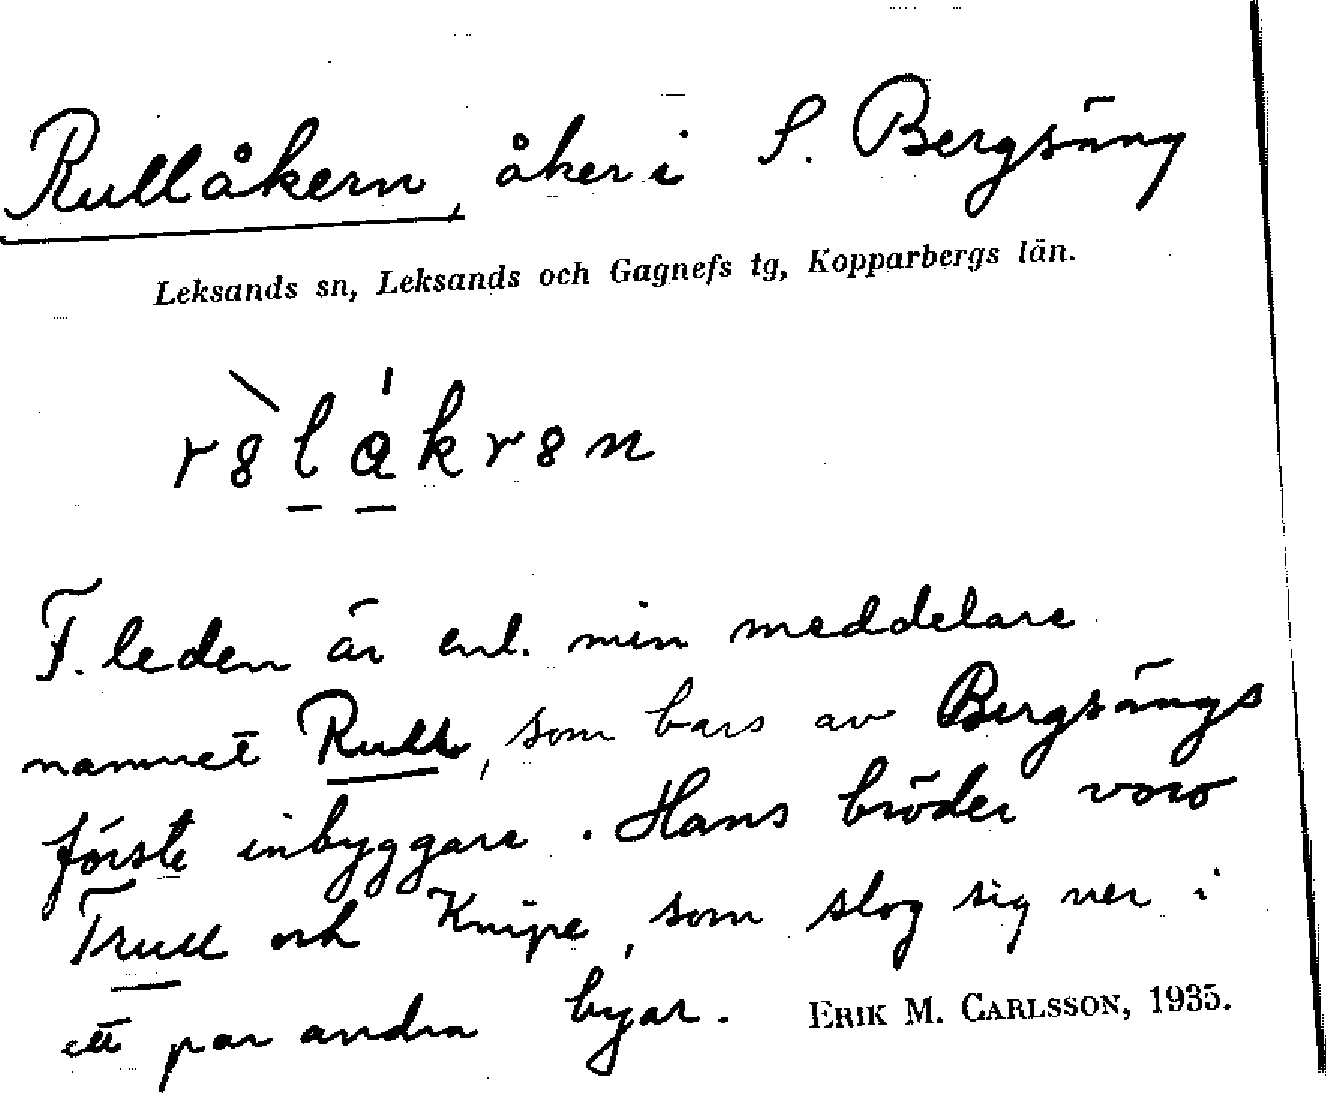 Rullåkern, åker i S. Bergsäng
Leksands sn, Leksands och Gagnefs tg, Kopparbergs län.
F. leden är enl. min meddelare
namnet Rull, som bars av Bergsängs
förste inbyggare. Hans bröder voro
Trull och Knipe, som slog sig ner i
ett par andra byar. ERIK M. CARLSSON, 1935.